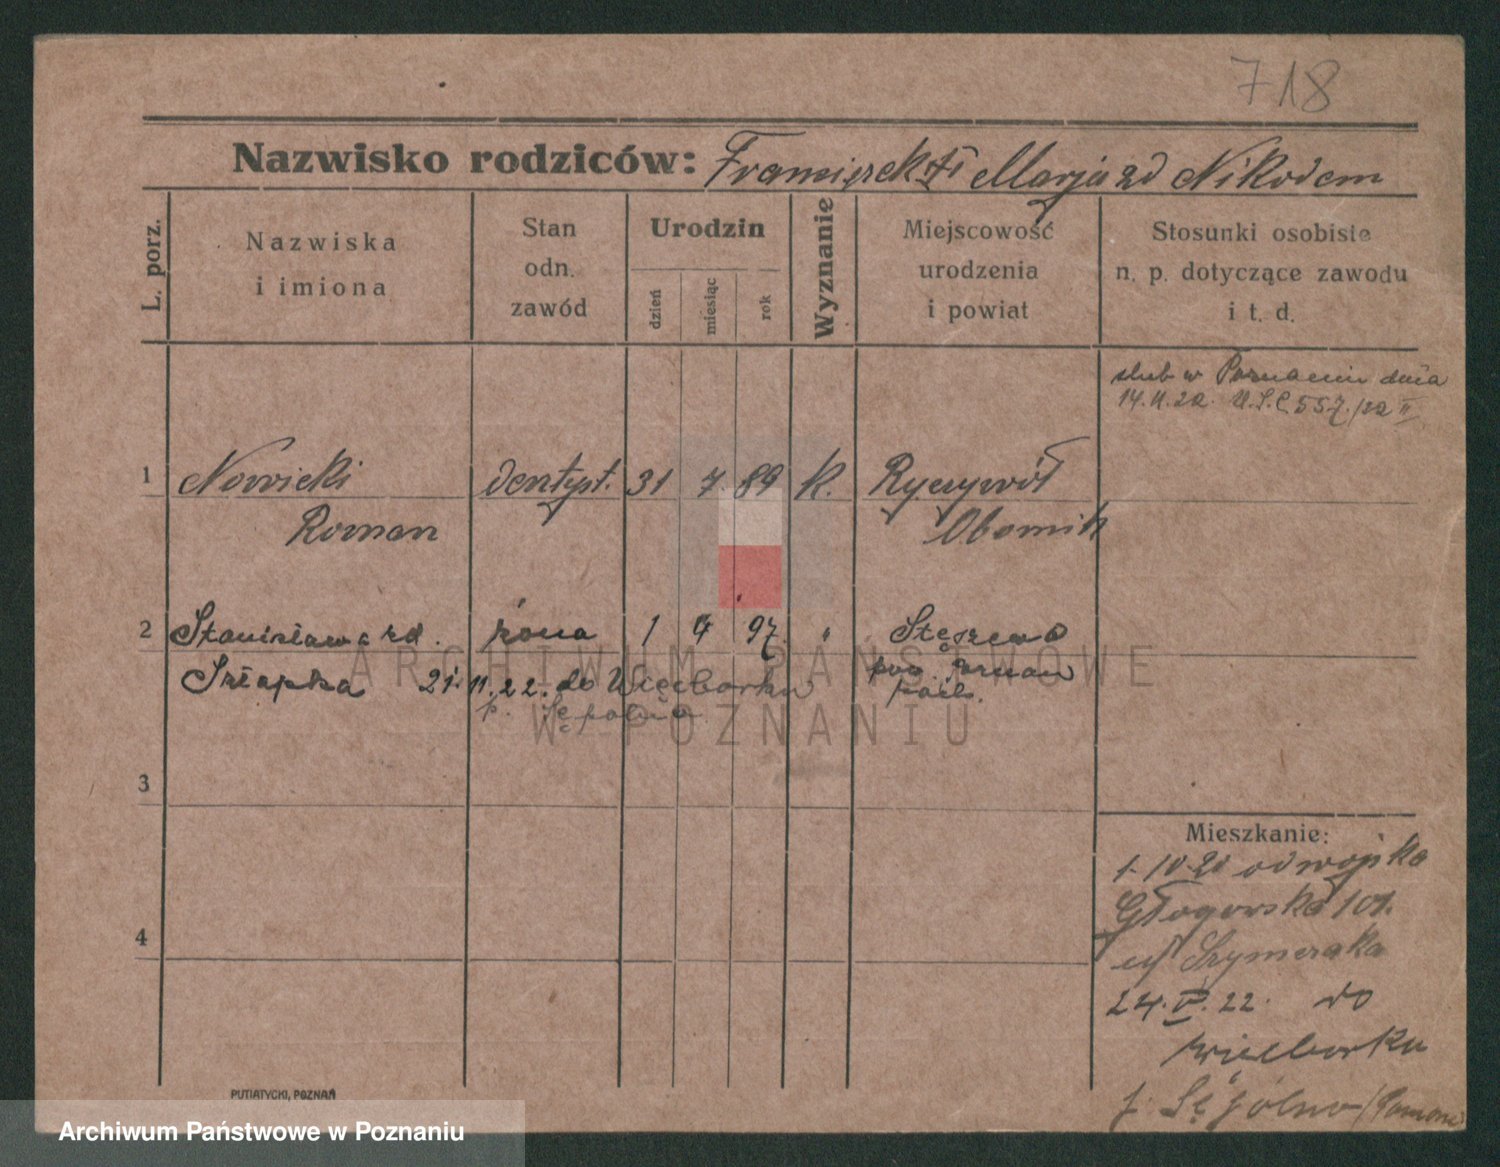 718
Nazwisko rodziców: Franciszek i Marja zd Nikodem
L. porz.
Nazwiska
i imiona
Stan
odn.
zawód
Urodzin
dzień
miesiąc
rok
Wyznanie
Miejscowość
urodzenia
i powiat
Stosunki osobiste
n. p. dotyczące zawodu
i t. d.
ślub w Poznaniu dnia
U.S.C. 557/22 II
1 Nowicki dentyst. 31 7 89 K. Ryczywół
Roman Obornik
2 Stanisława zd. żona 1 4 97. " Stęszewo
Szłapka 21.11.22. do Więcborka pow. Poznań
p. Sępolno zach.
3
4
Mieszkanie:
1. 10. 20 od wojska
Głogowska 101.
u/ Szymczaka
24. V. 22. do
Więcborku
p. Sępólno (Pomorze
PUTIATYCKI, POZNAŃ
ARCHIWUM PAŃSTWOWE
W POZNANIU
Archiwum Państwowe w Poznaniu